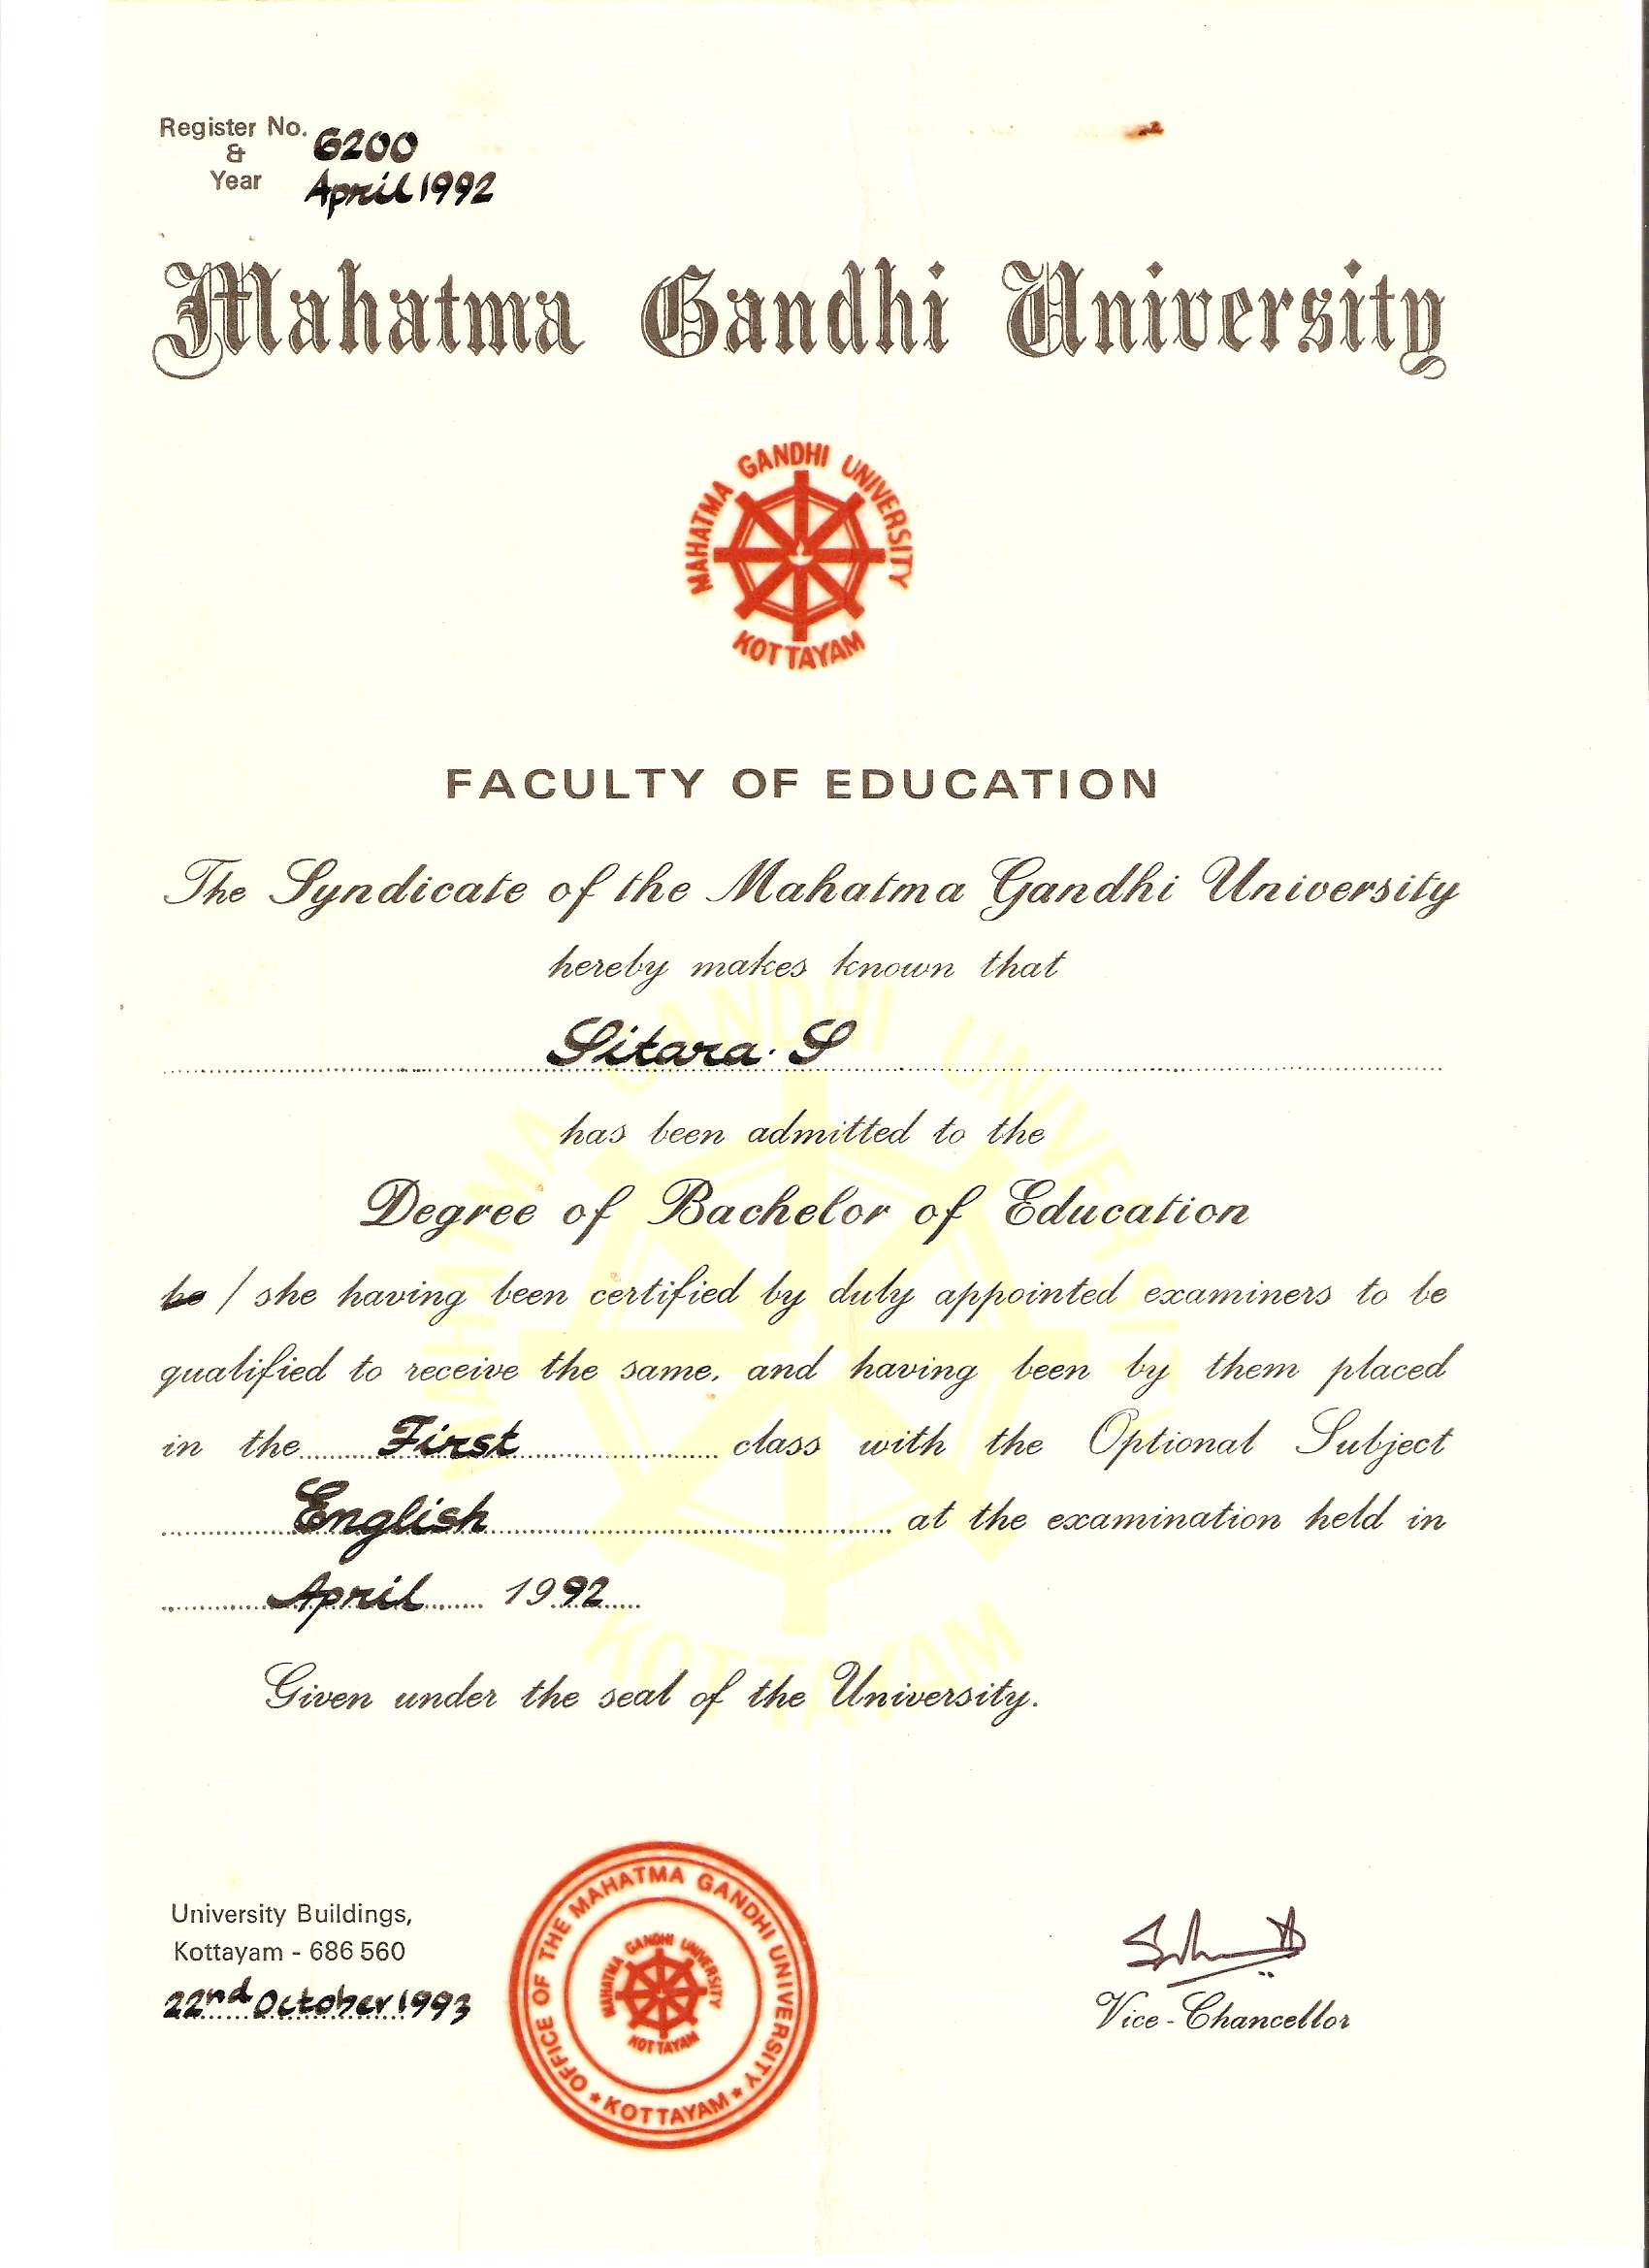 Register No. 6200
&
Year April 1992
Mahatma Gandhi University
MAHATMA GANDHI UNIVERSITY
KOTTAYAM
FACULTY OF EDUCATION
The Syndicate of the Mahatma Gandhi University
hereby makes known that
Sitara. S
has been admitted to the
Degree of Bachelor of Education
he / she having been certified by duly appointed examiners to be
qualified to receive the same, and having been by them placed
in the First class with the Optional Subject
English at the examination held in
April 1992
Given under the seal of the University.
University Buildings,
Kottayam - 686 560
22nd October 1993
OFFICE OF THE MAHATMA GANDHI UNIVERSITY
★ KOTTAYAM ★
MAHATMA GANDHI UNIVERSITY
KOTTAYAM
Vice-Chancellor
MAHATMA GANDHI UNIVERSITY
KOTTAYAM